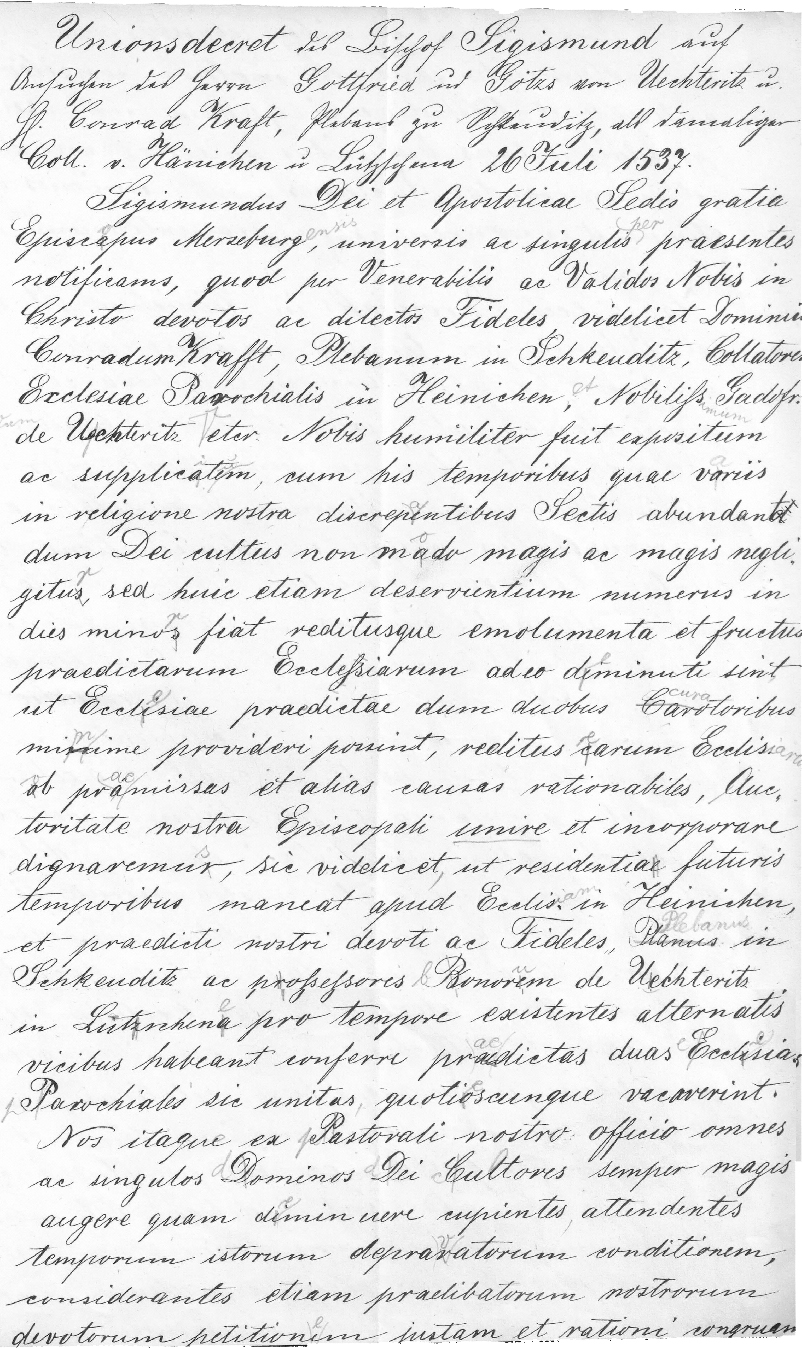 Unionsdecret des Bischof Sigismund auf
Ansuchen des Herrn Gottfried ud Götzs von Uechteritz u.
H. Conrad Kraft, Plebans zu Schkeuditz, als damaliger
Coll. v. Hänichen u Lützschena 26 Juli 1537.
Sigismundus Dei et Apostolicae Sedis gratia
Episcapus Merseburgensis, universis ac singulis per praesentes
notificams, quod per Venerabilis ac Validos Nobis in
Christo devotos ac dilectos Fideles, videlicet Dominum
Conradum Krafft, Plebanum in Schkeuditz, Collatorem
Exclesiae Parochialis in Heinichen, et Nobiliss. Gadofr.
de Uechteritz etcr. Nobis humiliter fuit expositum
ac supplicatem, cum his temporibus quae variis
in religione nostra discrepentibus Sectis abundant
dum Dei cultus non mado magis ac magis negli-
gitus, sed huic etiam deservientium numerus in
dies minos fiat reditusque emolumenta et fructus
praedictarum Ecclessiarum adeo diminuti sint
ut Ecclisiae praedictae dum duobus Caratoribus
minime provideri possint, reditus earum Ecclisiarum
ob pramissas et alias causas rationabiles, Auc-
toritate nostra Episcopali unire et incorporare
dignaremur, sic videlicet, ut residentiae futuris
temporibus maneat apud Ecclisiam in Heinichen,
et praedicti nostri devoti ac Fideles, Plebanus in
Schkeuditz ac professoris Bonorem de Uechteritz
in Lutznhena pro tempore existentes alternatis
vicibus habeant conferre praedictas duas Ecclisias
Parochiales sic unitas, quotioscunque vacaverint.
Nos itaque ex Pastorali nostro officio omnes
ac singulos Dominos Dei Cultores semper magis
augere quam diminuere cupientes, attendentes
temporum istorum depravatorum conditionem,
considerantes etiam praelibatorum nostrorum
devotorum petitionim justam et rationi congruam